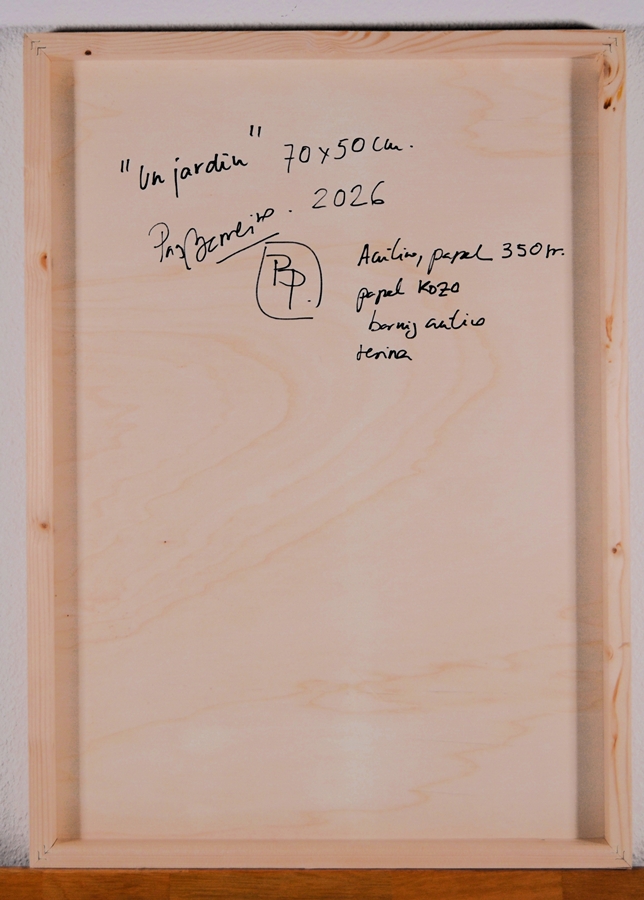 "Un jardín" 70x50 cm.
Paz Barreiro. 2026
BP.
Acrílico, papel 350 gr.
papel KOZO
barniz acrílico
resina